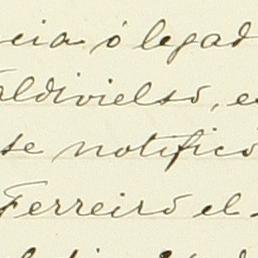 cia ó legad
aldivielso, e
se notificó
Ferreiro el